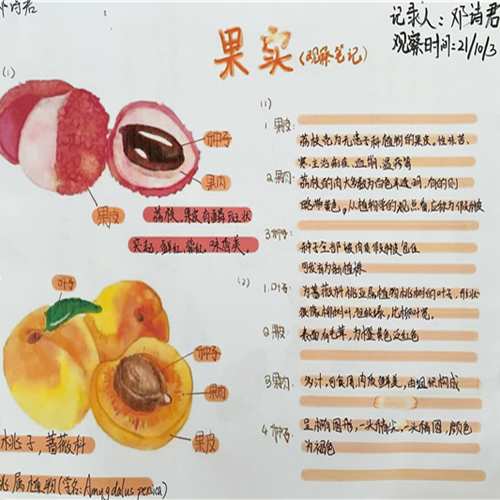 邓诗君
果实(观察笔记)
记录人:邓诗君
观察时间:21/10/3
(1)
种子
果肉
果皮
荔枝,果皮有鳞斑状
突起,鲜红,紫红,味香美。
(1)
1 果皮:
荔枝壳为无患子科植物的果皮。性味苦、
寒。主治痢疾、血崩、湿疹等
2.果肉:
荔枝的肉大多数为白色半透明,有的则
略带黄色。从植物学的观点看它称为假种皮
3.种子:
种子全部被肉质假种皮包住
可发育为新植株
(2)
叶子
种子
果肉
果皮
桃子,蔷薇科
桃属植物(学名:Amygdalus persica)
1.叶子:
为蔷薇科桃亚属植物桃树的叶子,形状
很像柳树叶,但较矮,比柳叶宽。
2.果皮:
表面有毛茸,为橙黄色泛红色
3.果肉:
多汁,可食用,肉质鲜美,由组织构成
4.种子:
呈椭圆形,一头稍尖,一头稍圆,颜色
为褐色